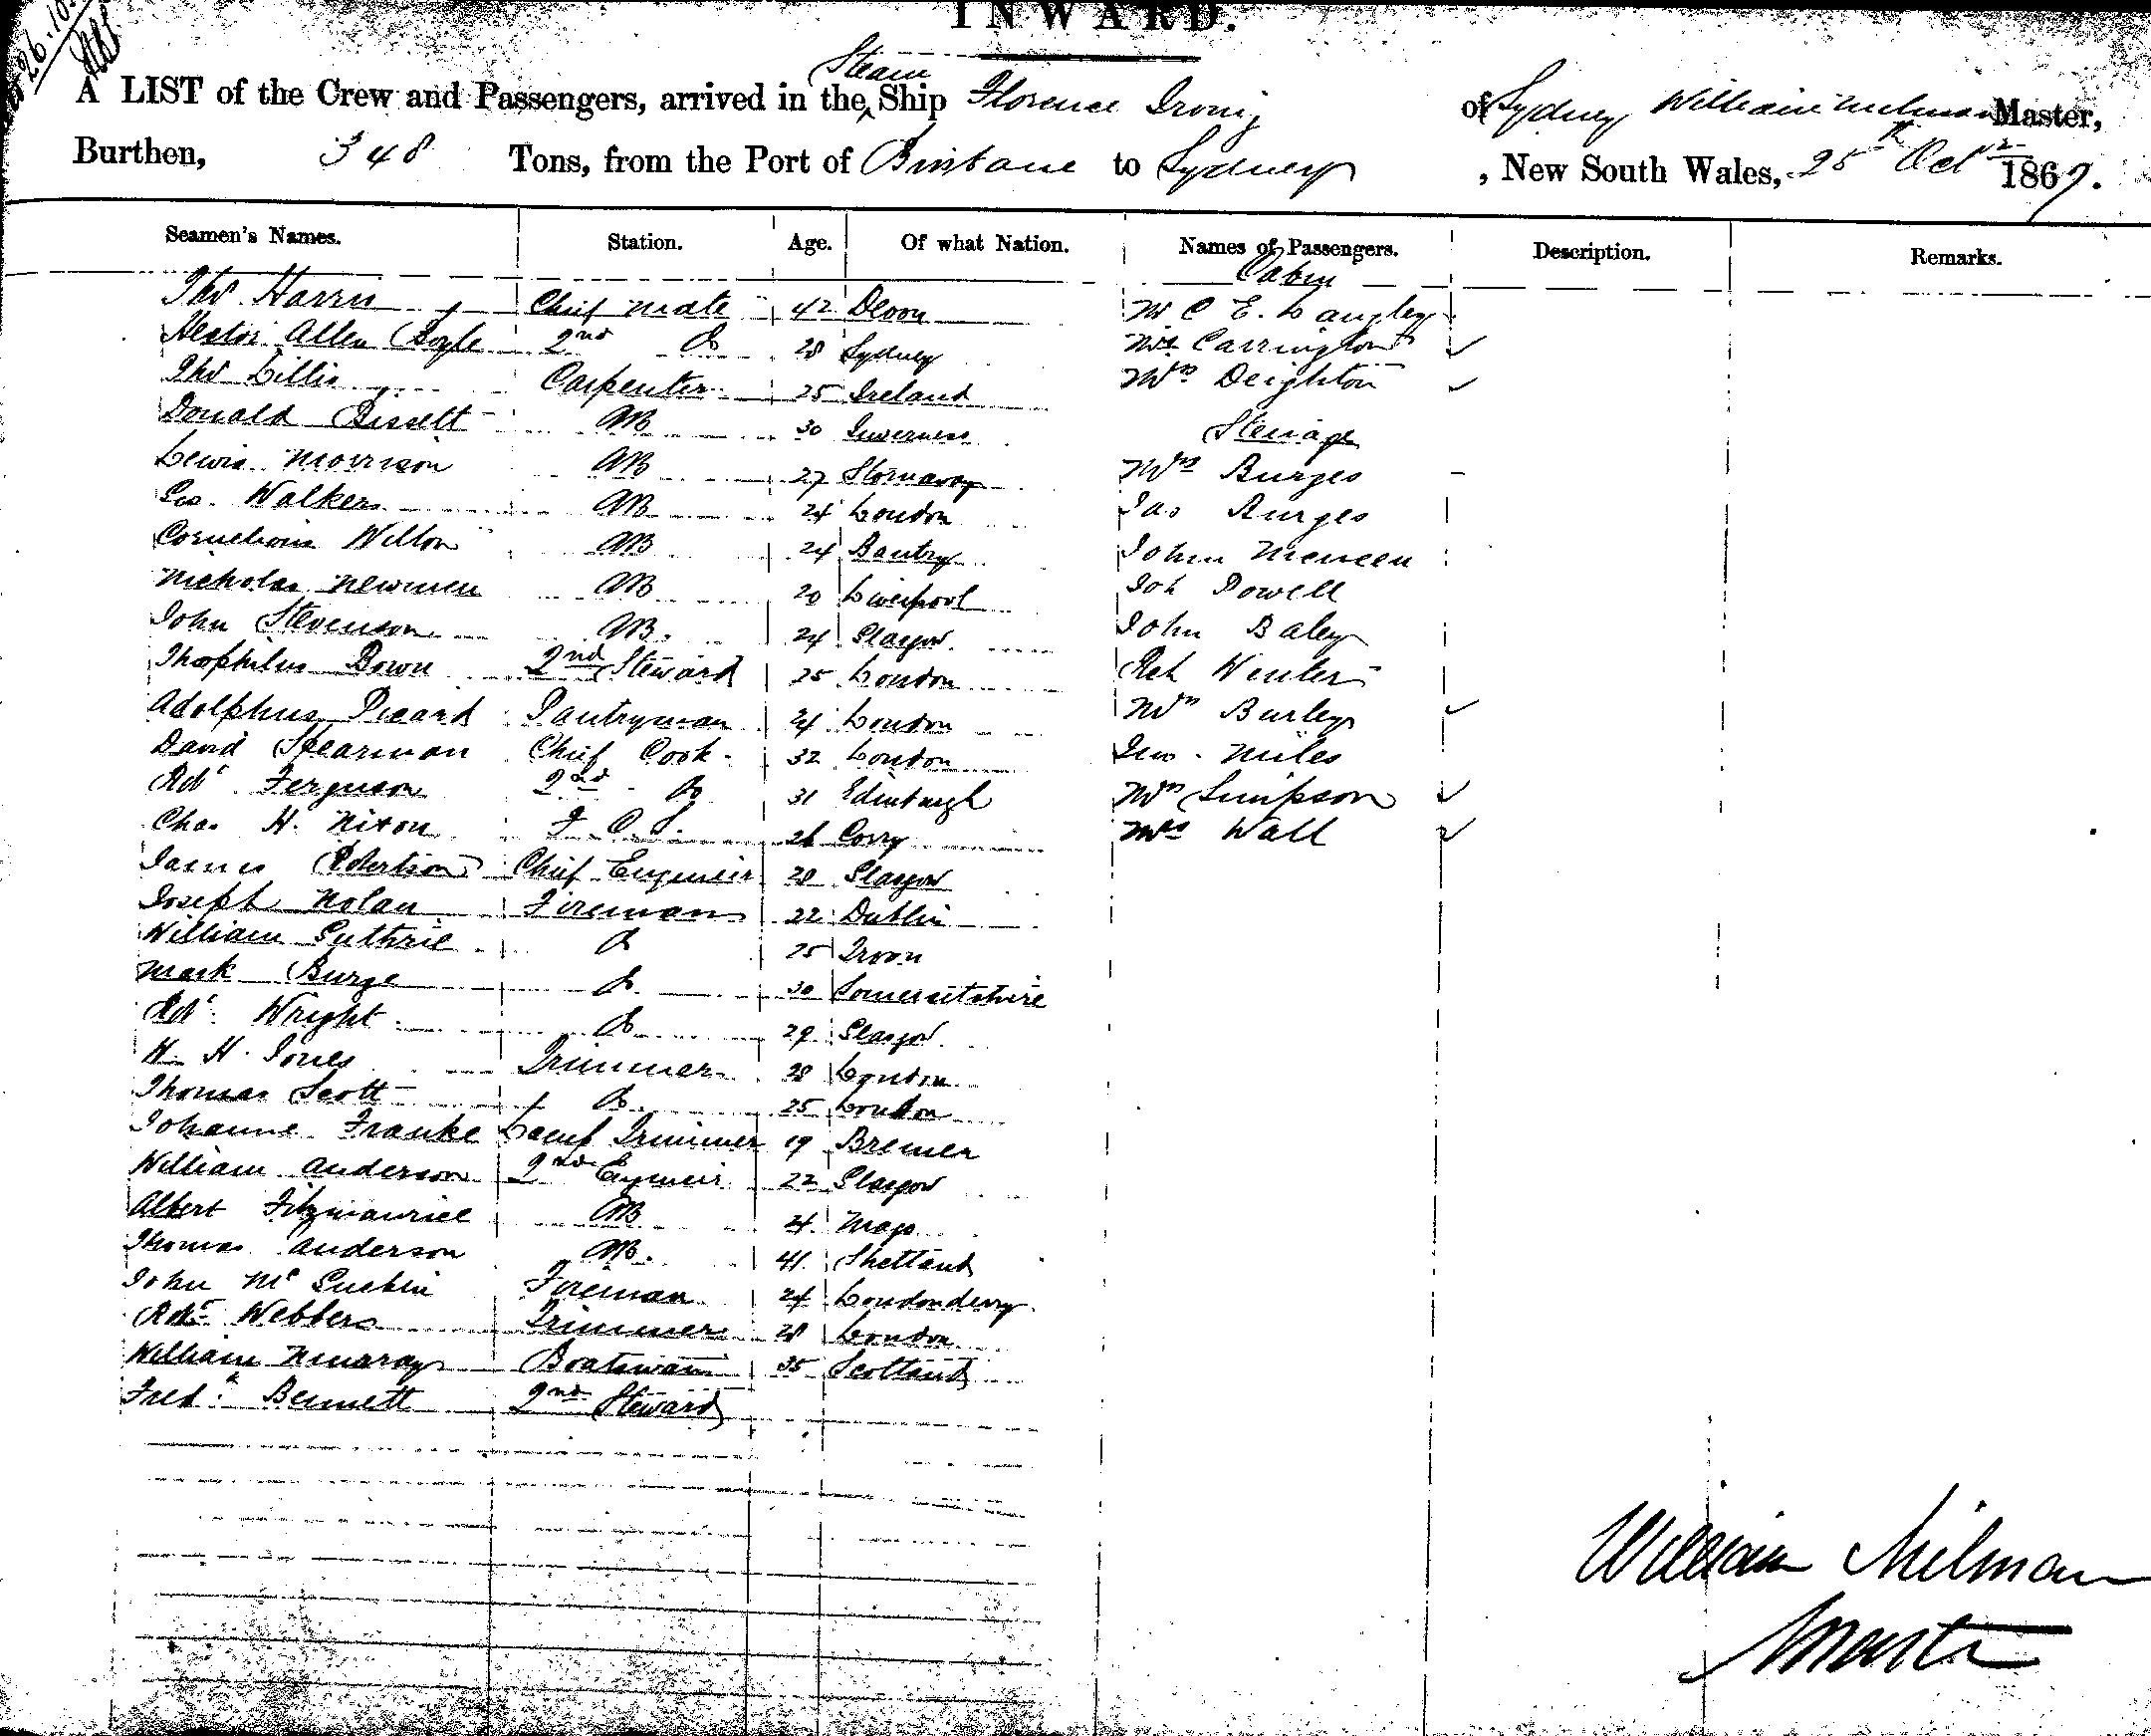 INWARD.
A LIST of the Crew and Passengers, arrived in the Steam Ship Florence Irving of Sydney William Milman Master,
Burthen, 348 Tons, from the Port of Brisbane to Sydney, New South Wales, 25th Octr 1867.
Seamen's Names. Station. Age. Of what Nation. Names of Passengers. Description. Remarks.
Cabin
Thos Harris Chief Mate 42 Devon Mr C E. Langley
Hector Allen Boyle 2nd Do 28 Sydney Mrs Carrington
Thos Lillis Carpenter 25 Ireland Mrs Deighton
Donald Bissett AB 30 Inverness Steerage
Lewis Morrison AB 27 Stornaway Mrs Burges
Geo. Walker AB 24 London Jas Burges
Cornelious Wilton AB 24 Bantry John
Nicholas Newmen AB 20 Liverpool Joh Powell
John Stevenson AB. 24 Glasgow John Baley
Theophilus Down 2nd Steward 25 London Rch Winter
Adolphus Picard Pantryman 24 London Mrs Burley
David Spearman Chief Cook 32 London Miles
Robt Ferguson 2nd Do 31 Edinburgh Mrs Simpson
Chas H. Nixon F. C. S. 26 Mrs Wall
James Robertson Chief Engineir 28 Glasgow
Joseph Nolan Fireman 22 Dublin
William Guthrie Do 25 Troon
Mark Burge Do 30 Somersetshire
Robt Wright Do 29 Glasgow
H. H. Jones Trimmer 28 London
Thomas Scott Do 25 London
Johanne Franke Trimmer 19 Bremen
William Anderson 2nd Engineir 22 Glasgow
Albert Fitzmaurice AB 24 Mayo
Thomas Anderson AB. 41 Shetland
John Mc Guckin Fireman 24 Londonderry
Robt Webber Trimmer 28 London
William Murray Boatswain 35 Scotland
Fredk Bennett 2nd Steward
William Milman
Master